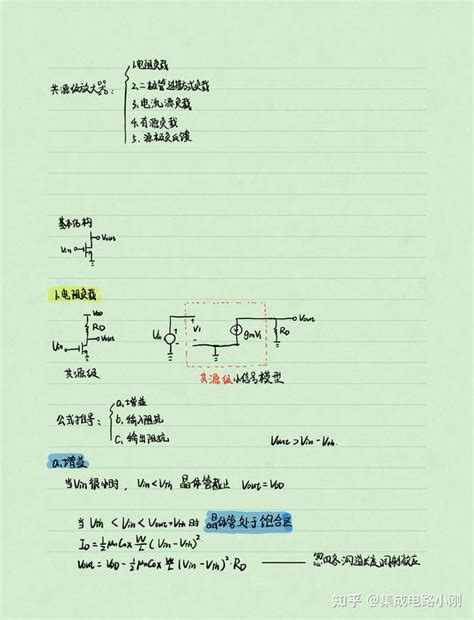 共源级放大器:
1.电阻负载
2.二极管连接方式负载
3.电流源负载
4.有源负载
5.源极负反馈
基本结构
Vin Vout
1.电阻负载
VDD
RD
Vin Vout
共源级
Vin V1 gmV1 RD Vout
共源级小信号模型
公式推导:
a.增益
b.输入阻抗
c.输出阻抗
Vout>Vin-Vth
a.增益
当Vin很小时, Vin<Vth 晶体管截止 Vout=VDD
当 Vth<Vin<Vout+Vth时 晶体管处于饱合区
ID=½μnCox W/L (Vin-Vth)²
Vout=VDD-½μnCox W/L (Vin-Vth)²·RD —— 忽略沟道长度调制效应
知乎 @集成电路小刚